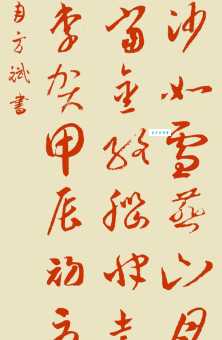 沙如雪燕山月
當金絡腦快走
李贺甲辰初
月方斌書